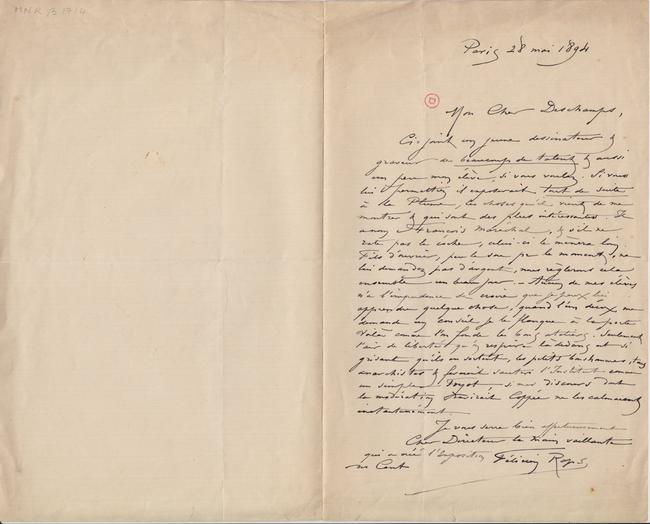 Paris 28 mai 1894
Mon Cher Deschamps,
Ci-joint un jeune dessinateur &
graveur de beaucoup de talent & aussi
un peu mon élève, si vous voulez. Si vous
lui permettez il exposerait tout de suite
à la Plume, les choses qu'il vient de me
montrer & qui sont des plus intéressantes. Il
a nom François Maréchal, & s'il ne
rate pas le coche, celui-ci le mènera loin.
Fils d'ouvrier, peu le sac pr le moment, ne
lui demandez pas d'argent, nous réglerons cela
ensemble un beau jour. – Aucun de mes élèves
n'a l'impudence de croire que je peux lui
apprendre quelque chose, quand l'un d'eux me
demande un conseil je le flanque à la porte
Voilà comme l'on fonde les bons ateliers. Seulement
l'air de liberté qu'on respire là-dedans est si
grisant qu'ils en sortent, les petits bonshommes,
anarchistes & feraient sauter l'Institut comme
un simple si mes discours dont
la modération Coppée ne les calmaient
instantanément.
Je vous serre bien affectueusement
Cher Directeur la main vaillante
qui a créé l'Exposition
des Cent
Félicien Rops